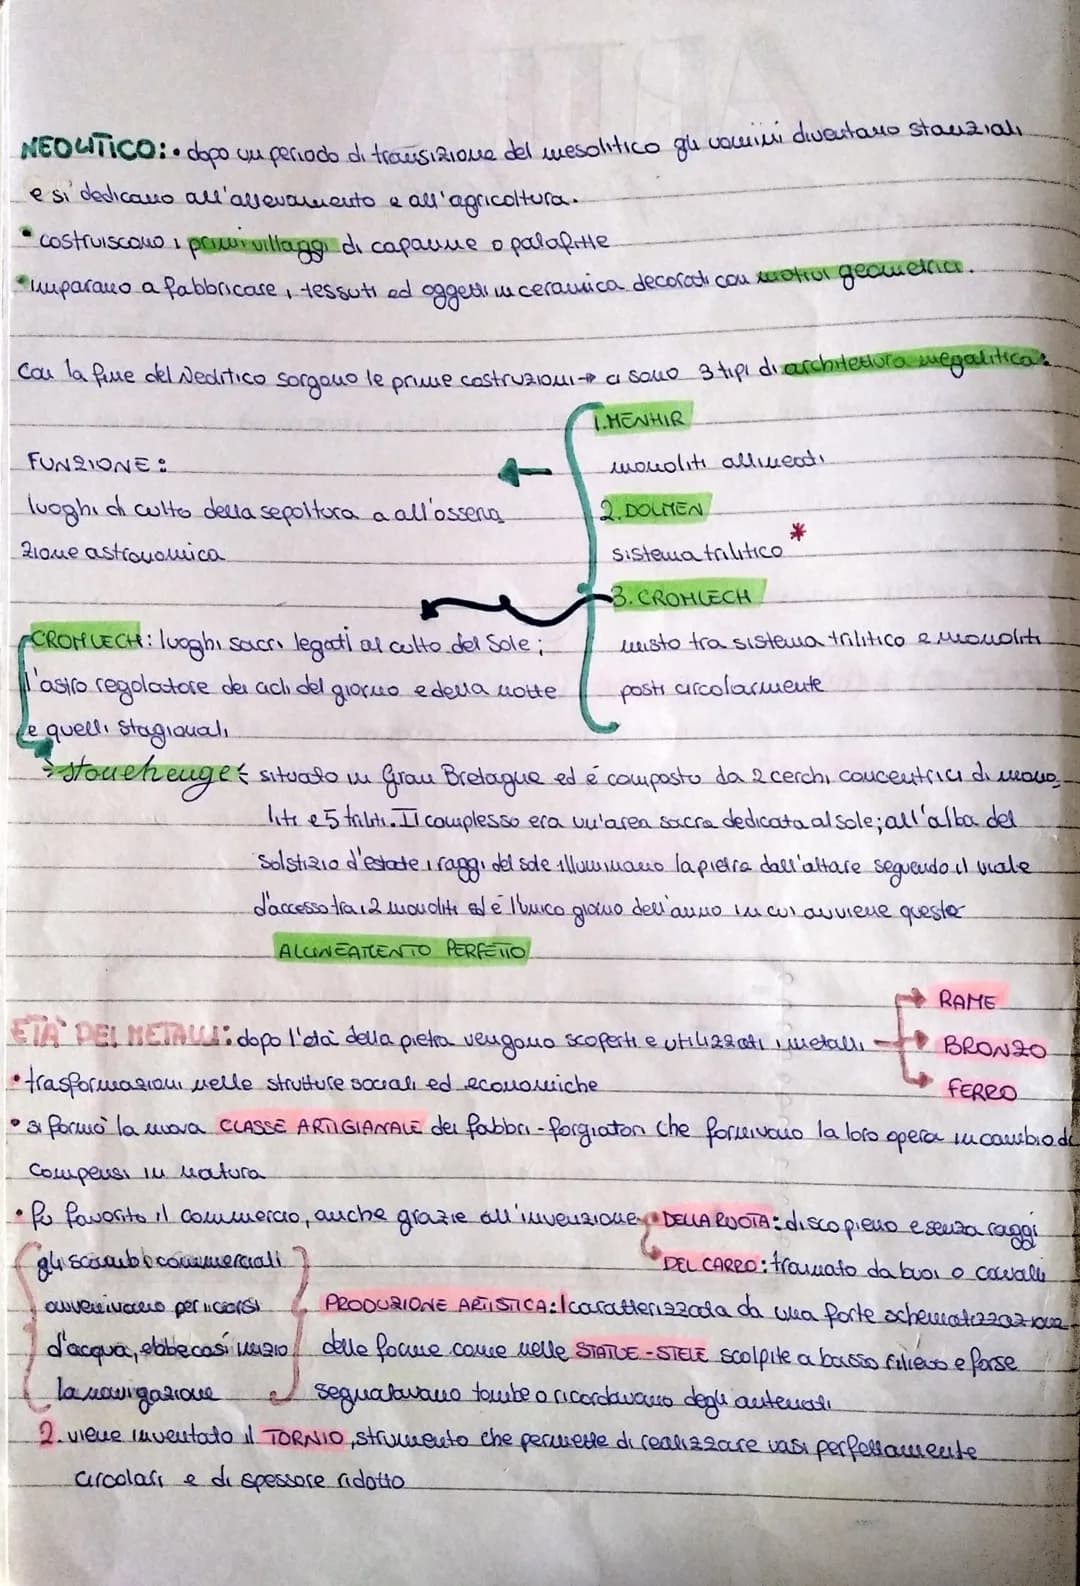 NEOLITICO: • dopo un periodo di transizione del mesolitico gli uomini diventano stanziali
e si dedicano all'allevamento e all'agricoltura.
• costruiscono i primi villaggi di capanne o palafitte
• imparano a fabbricare, tessuti ed oggetti in ceramica decorati con motivi geometrici.
Con la fine del Neolitico sorgono le prime costruzioni → ci sono 3 tipi di architettura megalitica:
1. MENHIR
monoliti allineati
2. DOLMEN
sistema trilitico *
3. CROMLECH
misto tra sistema trilitico e monoliti
posti circolarmente
FUNZIONE:
luoghi di culto della sepoltura a all'osserva
zione astronomica
CROMLECH: luoghi sacri legati al culto del Sole;
l'astro regolatore dei cicli del giorno e della notte
e quelli stagionali
Stonehenge: situato in Gran Bretagna ed è composto da 2 cerchi concentrici di mono
liti e 5 triliti. Il complesso era un'area sacra dedicata al sole; all'alba del
Solstizio d'estate i raggi del sole illuminano la pietra dall'altare seguendo il viale
d'accesso tra i 2 monoliti ed è l'unico giorno dell'anno in cui avviene questo
ALLINEAMENTO PERFETTO
ETÀ DEI METALLI: dopo l'età della pietra vengono scoperti e utilizzati i metalli
RAME
BRONZO
FERRO
• trasformazioni nelle strutture sociali ed economiche
• si formò la nuova CLASSE ARTIGIANALE dei fabbri-forgiatori che fornivano la loro opera in cambio di
compensi in natura
• fu favorito il commercio, anche grazie all'invenzione DELLA RUOTA: disco pieno e senza raggi
DEL CARRO: trainato da buoi o cavalli
gli scambi commerciali
avvenivano per i corsi
d'acqua, ebbe così inizio
la navigazione
PRODUZIONE ARTISTICA: 1 caratterizzata da una forte schematizzazione
delle forme come nelle STATUE-STELE scolpite a basso rilievo e forse
segnalavano tombe o ricordavano degli antenati
2. viene inventato il TORNIO, strumento che permette di realizzare vasi perfettamente
circolari e di spessore ridotto